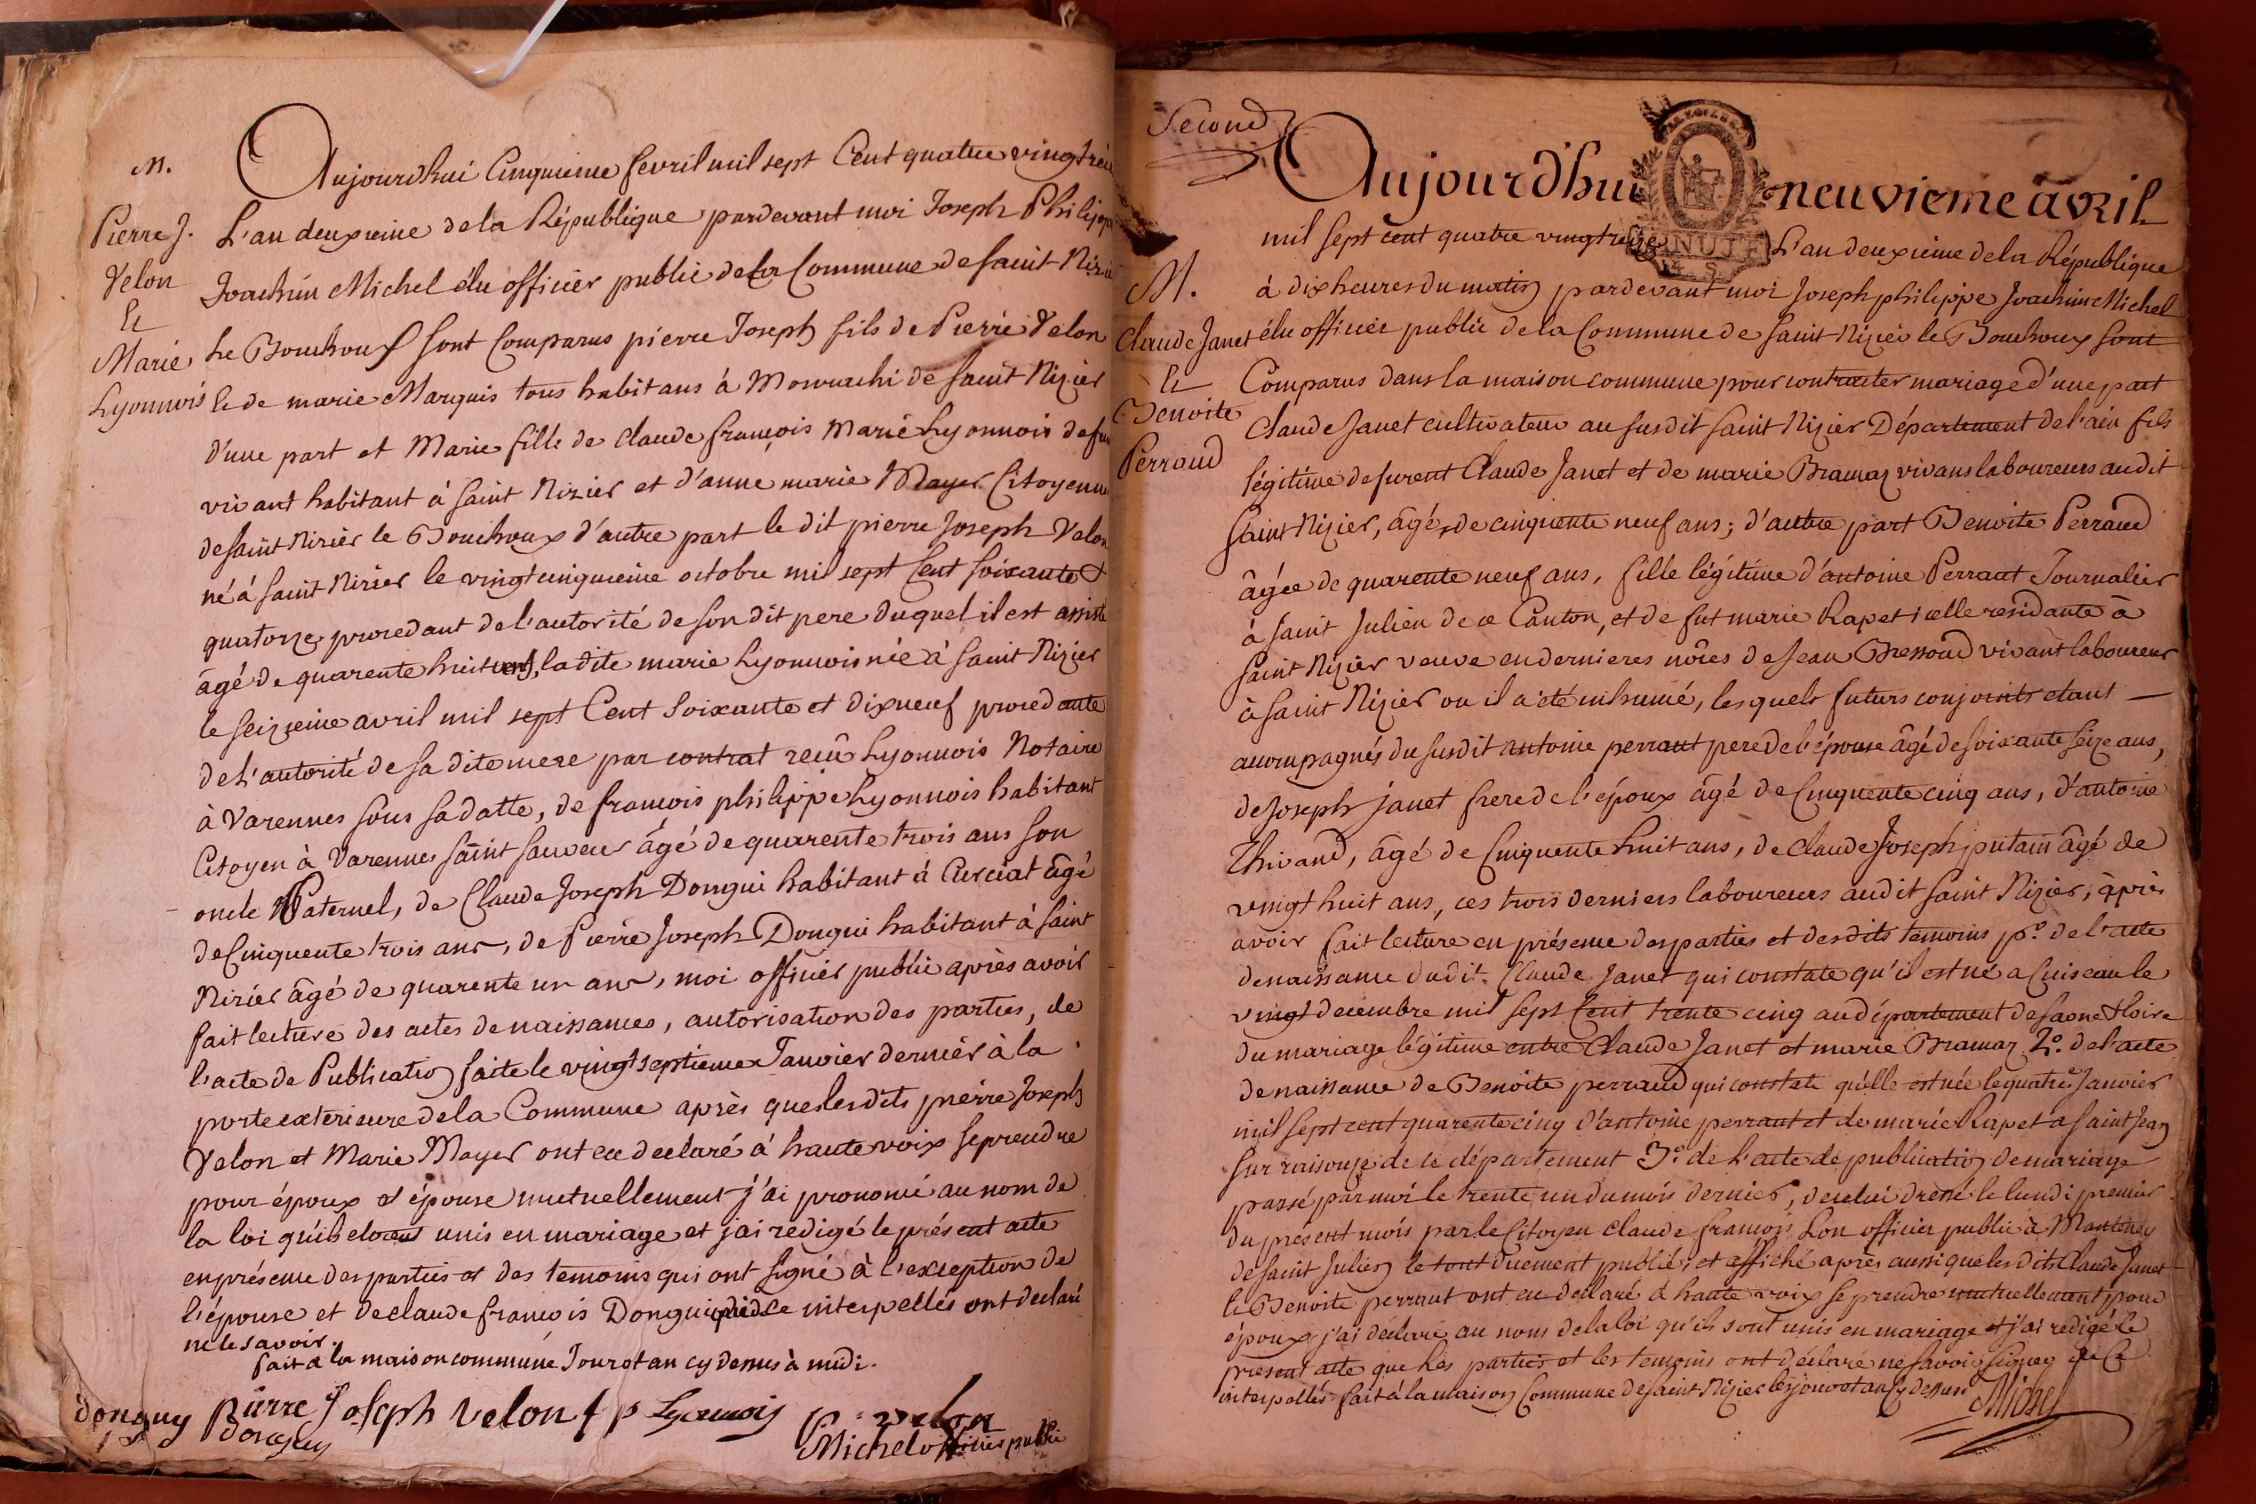 M.
Pierre J.
Velon
Et
Marie
Lyonnois
Aujourdhui Cinquieme fevril mil sept Cent quatre vingt trei
L'an deuxieme de la République pardevant moi Joseph Philippe
Joachim Michel élu officier public de la Commune de saint Nizier
le Bouchoux sont Comparus pierre Joseph fils de Pierre Velon
et de marie Marquis tous habitans à de saint Nizier
d'une part et Marie fille de claude françois Marie Lyonnois
vivant habitant à saint Nizier et d'anne marie Mayer Citoyenne
de saint Nizier le Bouchoux d'autre part le dit pierre Joseph Velon
né à saint Nizier le vingt cinquieme octobre mil sept Cent soixante &
quatorze procedant de l'autorité de son dit pere duquel il est assisté
âgé de quarente huit ans, la dite marie Lyonnois née à saint Nizier
le seizieme avril mil sept Cent soixante et dix neuf procedante
de l'autorité de sa dite mere par contrat reçu Lyonnois Notaire
à Varennes sous sa datte, de françois philippe Lyonnois habitant
Citoyen à Varennes saint sauveur âgé de quarente trois ans son
oncle Paternel, de Claude Joseph Dongui habitant à Curciat âgé
de Cinquente trois ans, de Pierre Joseph Dongui habitant à saint
Nizier âgé de quarente un ans, moi officier public après avoir
fait lecture des actes de naissances, autorisation des parties, de
l'acte de Publication faite le vingt septieme Janvier dernier à la
porte exterieure de la Commune après que lesdits pierre Joseph
Velon et Marie Mayer ont eu declaré à haute voix se prendre
pour époux et épouse mutuellement j'ai prononcé au nom de
la loi qu'ils etoient unis en mariage et j'ai redigé le présent acte
en présence des parties et des temoins qui ont signé à l'exception de
l'épouse et de claude françois Dongui interpellés ont declaré
ne le savoir.
fait à la maison commune Jour et an cy dessus à midi.
donguy Pierre Joseph velon f p Lyonnois P. velon
donguy Michel officier public
Second
M.
Claude Janet
Et
Benoite
Perraud
Aujourd'hui neuvieme avril
mil sept cent quatre vingt treize L'an deuxieme de la République
à dix heures du matin pardevant moi Joseph philippe Joachim Michel
élu officier public de la Commune de saint Nizier le Bouchoux sont
Comparus dans la maison commune pour contracter mariage d'une part
Claude Janet cultivateur au susdit saint Nizier Département de l'ain fils
légitime de furent Claude Janet et de marie Bramaz vivans laboureurs audit
saint Nizier, âgé de cinquente neuf ans; d'autre part Benoite Perraud
âgée de quarente neuf ans, fille légitime d'antoine Perraut Journalier
à saint Julien de ce Canton, et de fut marie Rapet icelle residante à
saint Nizier veuve en dernieres nôces de Jean Bressoud vivant laboureur
à saint Nizier ou il a été inhumé, lesquels futurs conjoints etant
accompagnés du susdit antoine perraut pere de l'épouse âgé de soixante seize ans,
de Joseph janet frere de l'époux âgé de Cinquente cinq ans, d'antoine
Thivand, âgé de Cinquente huit ans, de claude Joseph putain âgé de
vingt huit ans, ces trois derniers laboureurs audit saint Nizier, après
avoir fait lecture en présence des parties et desdits temoins 1°. de l'acte
de naissance dudit Claude Janet qui constate qu'il est né a Cuiseau le
vingt decembre mil sept Cent trente cinq au département de saone & loire
du mariage légitime entre Claude Janet et marie Bramaz 2°. de l'acte
de naissance de Benoite perraud qui constate qu'elle est née le quatre Janvier
mil sept cent quarente cinq d'antoine perraut et de marie Rapet a saint Jean
sur raisouze de ce département 3°. de l'acte de publication de mariage
passé par moi le trente un du mois dernier, de celui dressé le lundi premier
du present mois par le Citoyen claude françois Lon officier public à Mantenay
de saint Julien le tout duement publié, et affiché après aussi que lesdits Claude Janet
et Benoite perraut ont eu declaré à haute voix se prendre mutuellement pour
époux j'ai déclaré au nom de la loi qu'ils sont unis en mariage et j'ai redigé le
présent acte que les parties et les temoins ont déclaré ne savoir signer de ce
interpellés fait à la maison Commune de saint Nizier les jour et an cy dessus Michel